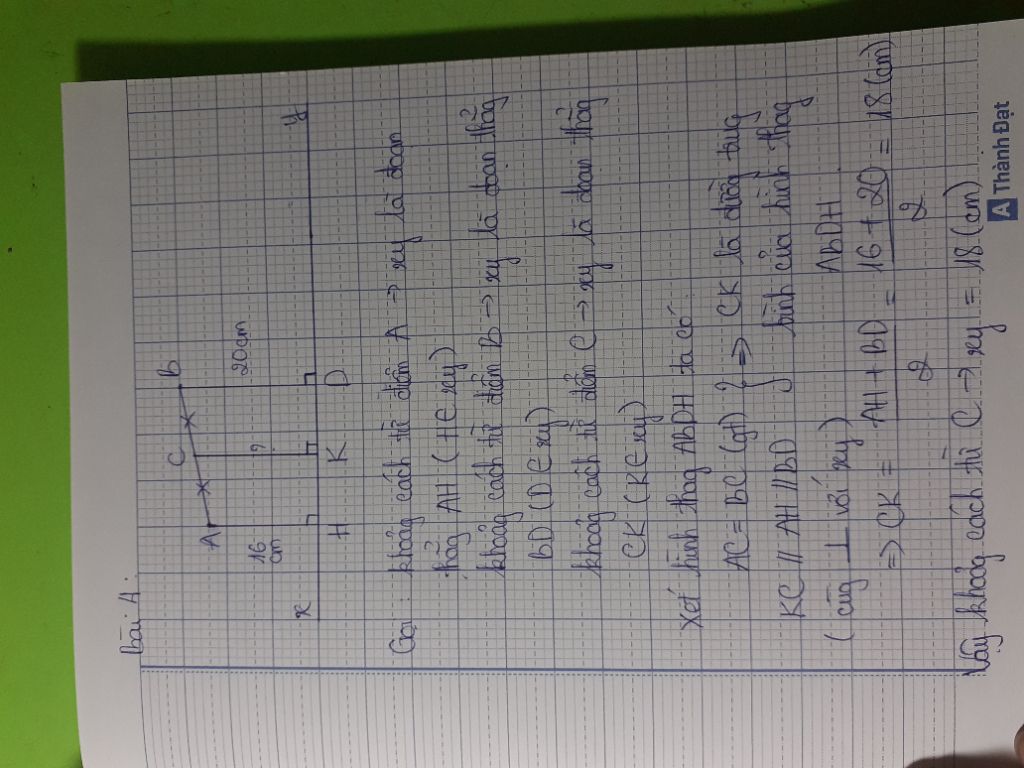 Bài 4:
A C B
16 cm ? 20cm
x H K D y
Gọi: khoảng cách từ điểm A → xy là đoạn
thẳng AH (H∈ xy)
khoảng cách từ điểm B → xy là đoạn thẳng
BD (D∈ xy)
khoảng cách từ điểm C → xy là đoạn thẳng
CK (K∈ xy)
Xét hình thag ABDH ta có:
AC = BC (gt) } => CK là đường tung
KC // AH // BD bình của hình thag
(cùng ⊥ với xy) ABDH.
=> CK = AH + BD / 2 = 16 + 20 / 2 = 18 (cm)
Vậy khoảng cách từ C → xy = 18 (cm)
A Thành Đạt